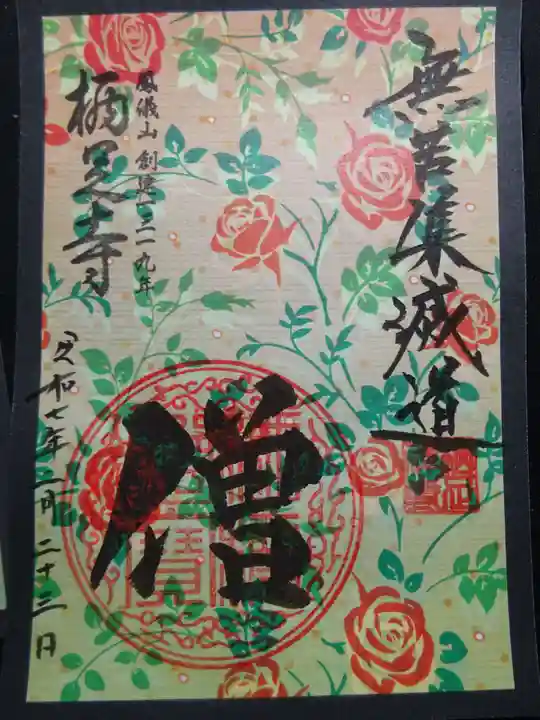 無苦集滅道
僧
鳳儀山 創建一三一九年
栖足寺
令和七年二月二十三日